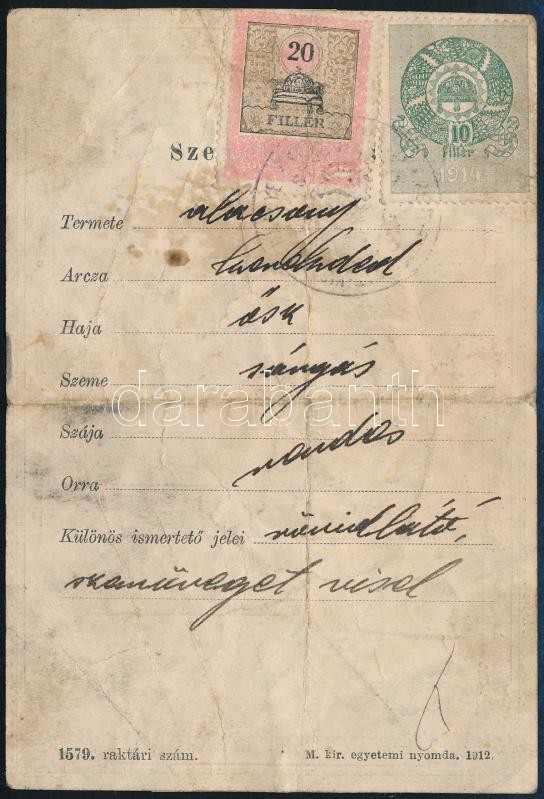 20
FILLÉR
10
fillér
1914
Sze
Termete alacsony
Arcza
Haja ősz
Szeme sárgás
Szája
Orra rendes
Különös ismertető jelei rövidlátó,
szemüveget visel
darabanth
1579. raktári szám. M. kir. egyetemi nyomda. 1912.